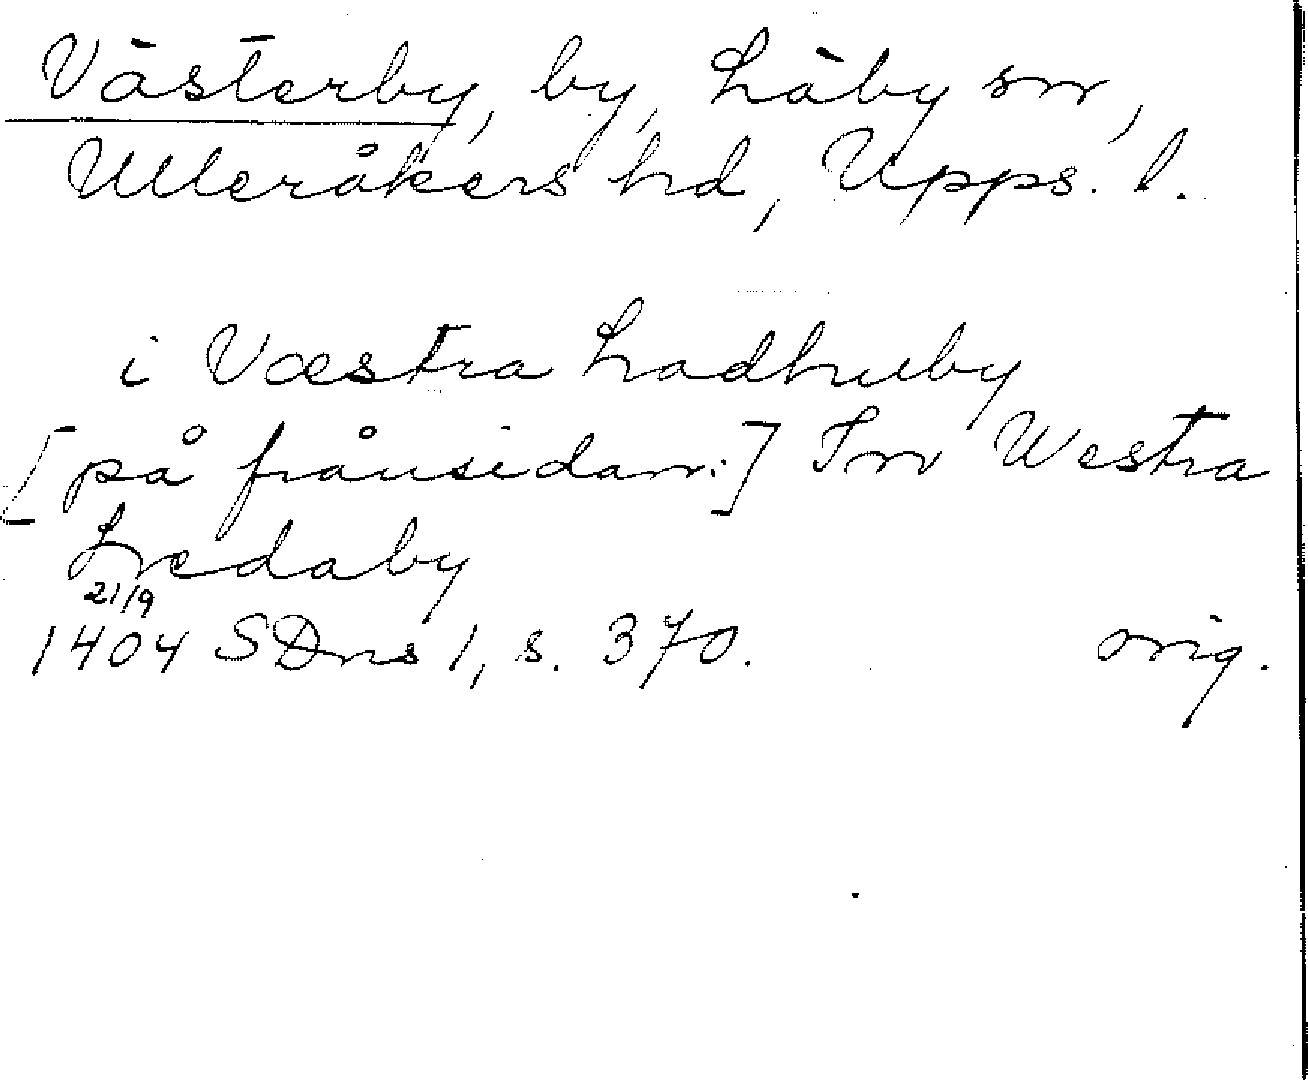 Västerby, by, Läby sn,
Ulleråkers hd, Upps. l.
i Væstra Ladhuby
[på frånsidan:] Jn Westra
Ledaby
21/9
1404 SDns 1, s. 370. orig.